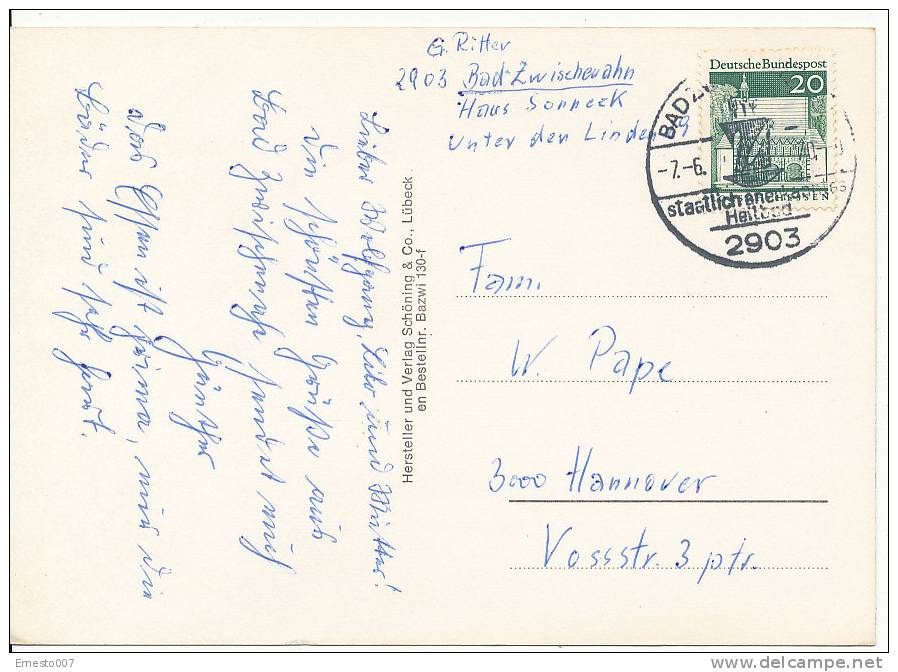 G. Ritter
2903 Bad-Zwischenahn
Haus Sonneck
Unter den Linden 9
Deutsche Bundespost
20
BAD
-7.-6.
staatlich anerkan
Heilbad
2903
Fam.
W. Pape
3000 Hannover
Vossstr. 3 ptr.
Hersteller und Verlag Schöning & Co., Lübeck
en Bestellnr. Bazwi 130-f
Lieber Wolfgang, Lilo und Mutter!
Die schönsten Grüße aus
Bad Zwischenahn sendet euch
Günther
Das Essen ist prima, nur die
Bäder sind sehr hart.
Ernesto007
delcampe.net